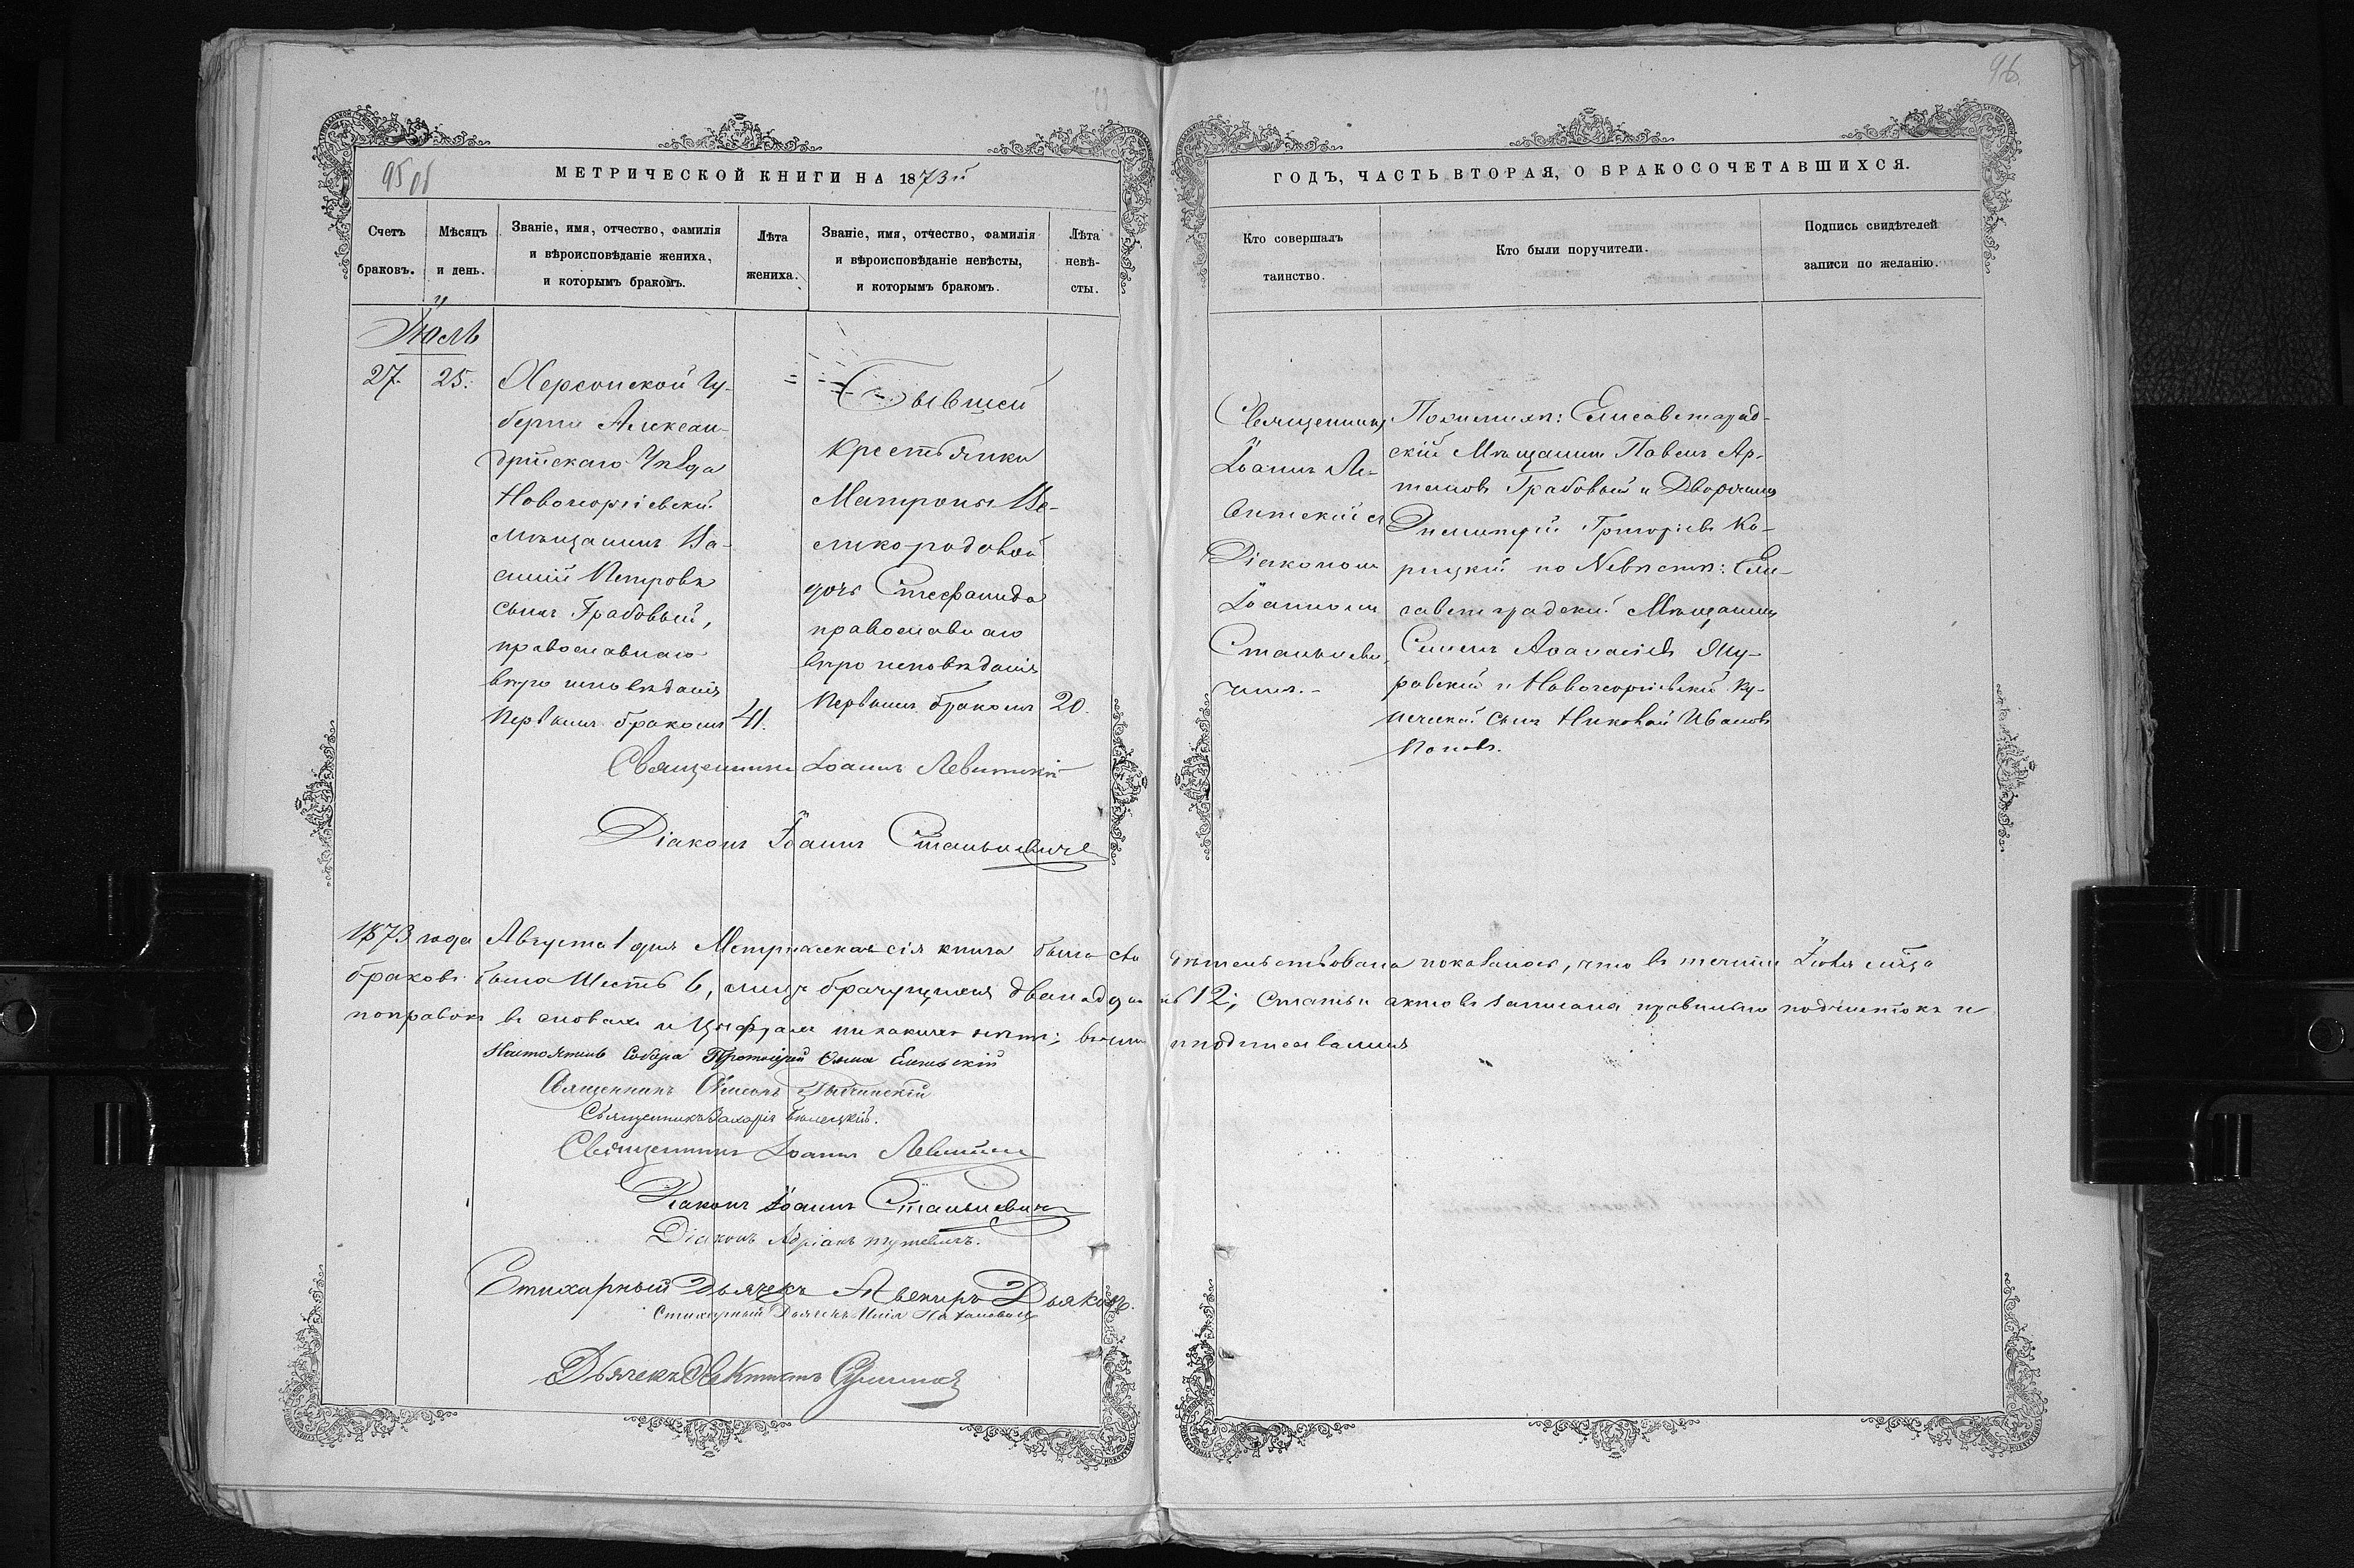 96.
95 об
МЕТРИЧЕСКОЙ КНИГИ НА 1873й
ГОДЪ, ЧАСТЬ ВТОРАЯ, О БРАКОСОЧЕТАВШИХСЯ.
Счетъ
браковъ.
Мѣсяцъ
и день.
Званіе, имя, отчество, фамилія
и вѣроисповѣданіе жениха,
и которымъ бракомъ.
Лѣта
жениха.
Званіе, имя, отчество, фамилія
и вѣроисповѣданіе невѣсты,
и которымъ бракомъ.
Лѣта
невѣ-
сты.
Кто совершалъ
таинство.
Кто были поручители.
Подпись свидѣтелей
записи по желанію.
Іюль
27.
25.
Херсонской Гу-
берніи Алексан-
дрійскаго Уѣзда
Новогеоргіевскій
мѣщанинъ Ва-
силій Петровъ
сынъ Грабовый,
православнаго
вѣроисповѣданія
первымъ бракомъ
41.
Бывшей
крестьянки
Матроны Ве-
ликородовой
дочь Стефанида
православнаго
вѣроисповѣданія
первымъ бракомъ
20.
Священникъ
Іоаннъ Ле-
витскій съ
Діакономъ
Іоанномъ
Станкеви-
чемъ.-
По женихѣ: Елисаветград-
скій Мѣщанинъ Павелъ Ар-
темовъ Грабовый и Дворянинъ
Димитрій Григорьевъ Ко-
рицкій по Невѣстѣ: Ели-
саветградскій Мѣщанинъ
Симеонъ Аѳанасіевъ
и Новогеоргіевскій Ку-
печескій сынъ Николай Ивановъ
Поповъ.
Священникъ Іоаннъ Левитскій
Діаконъ Іоаннъ Станкевичъ
1873 года Августа 1 дня Метрическая сія книга была свидѣтельствована показалось, что въ теченіи Іюля мѣсяца
браковъ было Шесть 6, лицъ брачущихся двенадцать 12; Статьи актовъ записаны правильно подчистокъ и
поправокъ въ словахъ и Цыфрахъ никакихъ нѣтъ; въ чемъ и подписываемся
Настоятель Собора Протоіерей
Священникъ Симеонъ
Священникъ Захарія Бѣлецкій.
Священникъ Іоаннъ Левитскій
Діаконъ Іоаннъ Станкевичъ
Діаконъ Адріанъ
Стихарный Дьячекъ Авениръ Дьяковъ.
Стихарный Дьячекъ
Дьячекъ